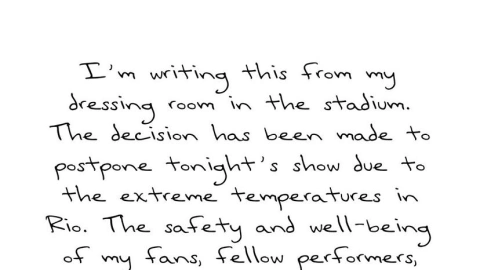 I'm writing this from my
dressing room in the stadium.
The decision has been made to
postpone tonight's show due to
the extreme temperatures in
Rio. The safety and well-being
of my fans, fellow performers,